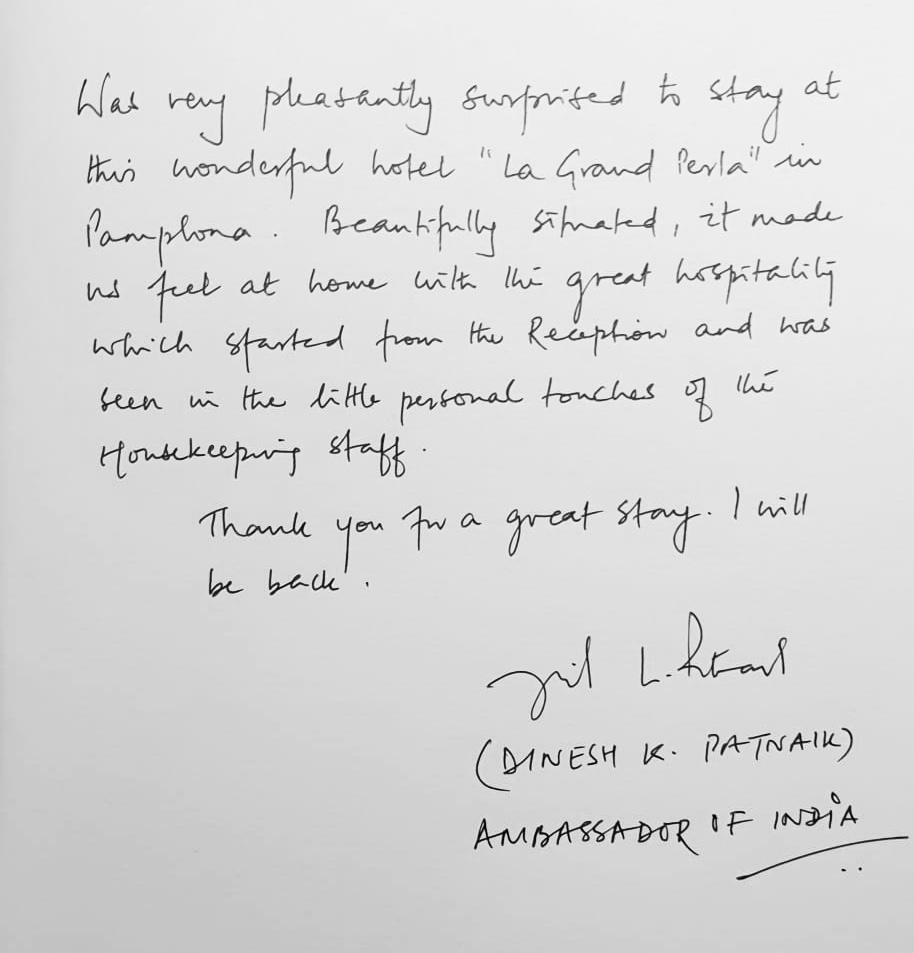 Was very pleasantly surprised to stay at
this wonderful hotel "La Grand Perla" in
Pamplona. Beautifully situated, it made
us feel at home with the great hospitality
which started from the Reception and was
seen in the little personal touches of the
Housekeeping staff.
Thank you for a great stay. I will
be back.
(DINESH K. PATNAIK)
AMBASSADOR OF INDIA